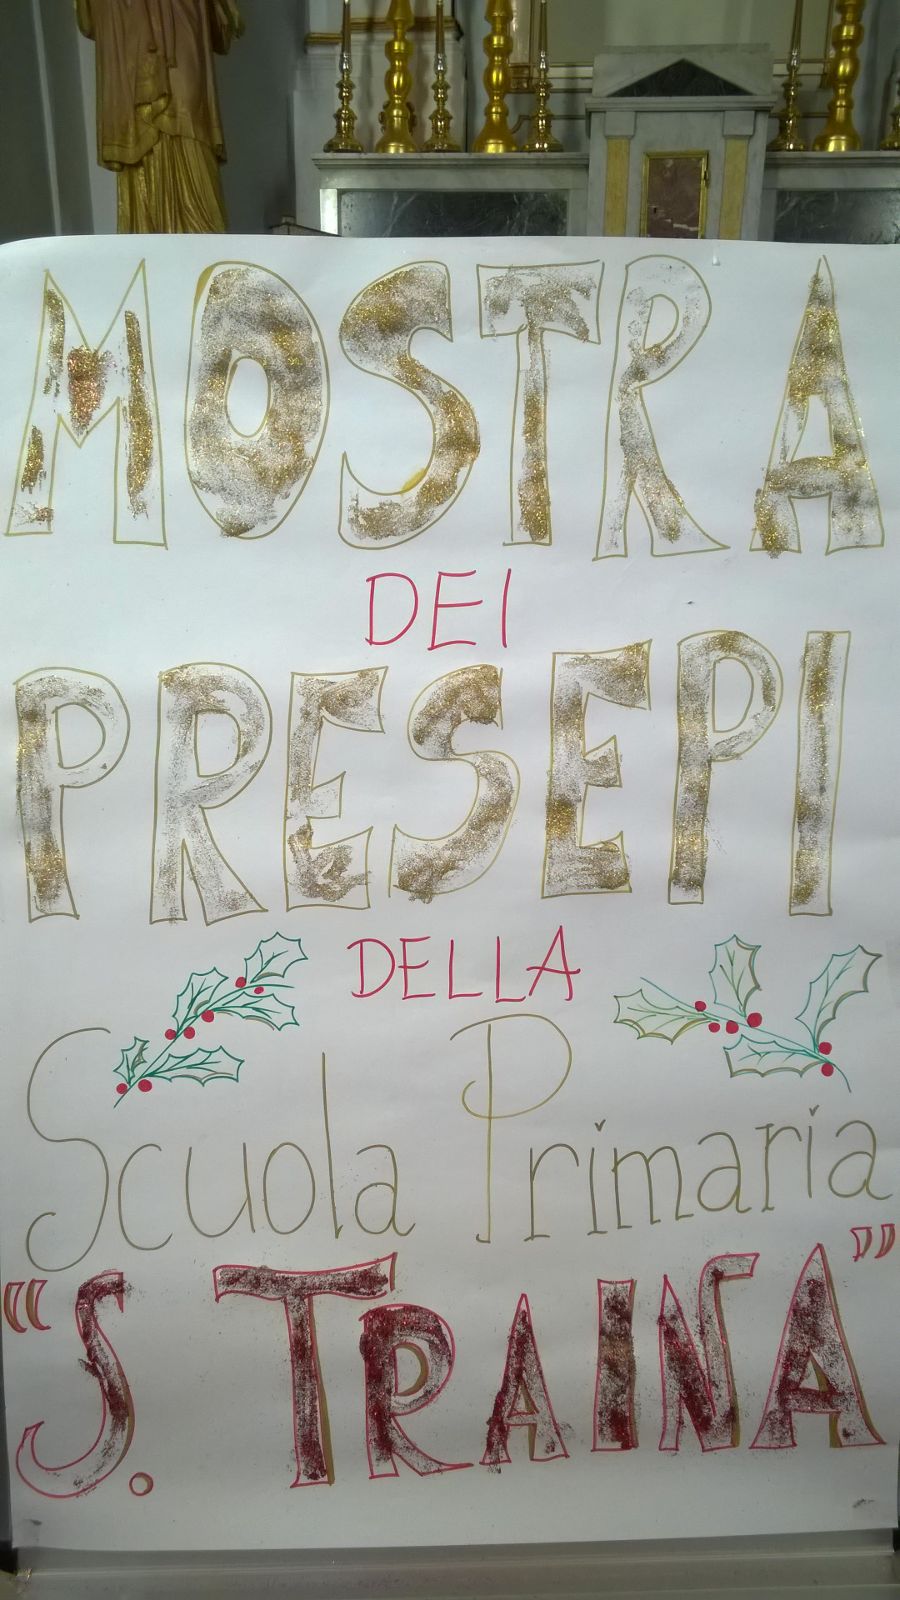 MOSTRA
DEI
PRESEPI
DELLA
Scuola Primaria
"S. TRAINA"